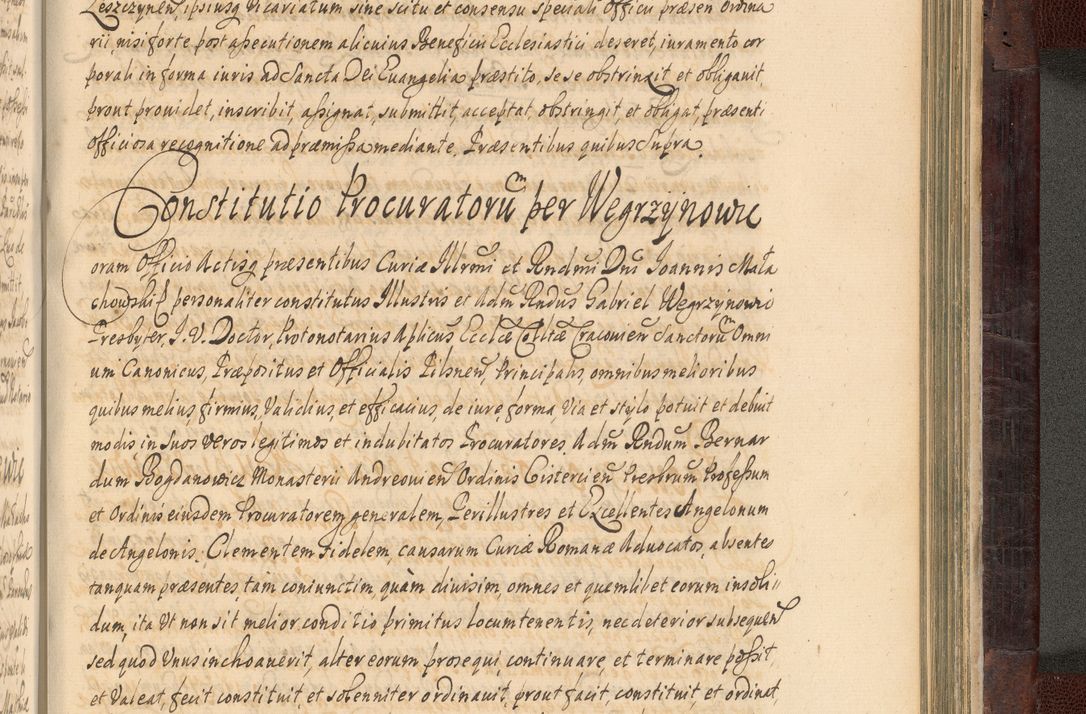 Leszczynen, ipsiusq Vicariatum sine scitu et consensu speciali Officii præsen Ordina
rii, nisi forte post assecutionem alicuius Beneficii Ecclesiastici deseret, iuramento cor
porali in forma iuris ad Sancta Dei Euangelia præstito, se se obstrinxit et obligauit
prout prouidet, inscribit, assignat, submittit, acceptat, obstringit, et obligat, præsenti
officiosa recognitione ad præmissa mediante. Præsentibus quibus Supra.
Constitutio Procuratorũ per Wegrzynowic
oram Officio Actisq præsentibus Curiæ Illrmi et Rndmi Dni Joannis Mała
chowski personaliter constitutus Illustris et Adm Rndus Gabriel Wegrzynowic
Presbyter, J. V. Doctor, Protonotarius Aplicus Ecclæ Colltæ Cracovien Sanctorum Omni
um Canonicus, Præpositus et Officialis Pilsnen, Principalis, omnibus melioribus
quibus melius, firmius, Validius, et efficacius, de iure, forma, Via et stylo potuit et debuit
modis, in suos veros legitimos et indubitatos Procuratores Adm Rndum Bernar
dum Bogdanowicz Monasterii Andreouien Ordinis Cistercien Presbrum Professum
et Ordinis eiusdem Procuratorem generalem, Perillustres et Excellentes Angelonum
de Angelonis, Clementem Fidelem, causarum Curiæ Romanæ Aduocatos, absentes
tanquam præsentes, tam coniunctim, quàm diuisim, omnes et quemlibet eorum insoli
dum, ita Ut non sit melior conditio primitus locum tenentis, nec deterior subsequen
sed quod Vnus inchoauerit, alter eorum prosequi, continuare, et terminare possit,
et Valeat, fecit, constituit, et solenniter ordinauit, prout facit, constituit, et ordinat,